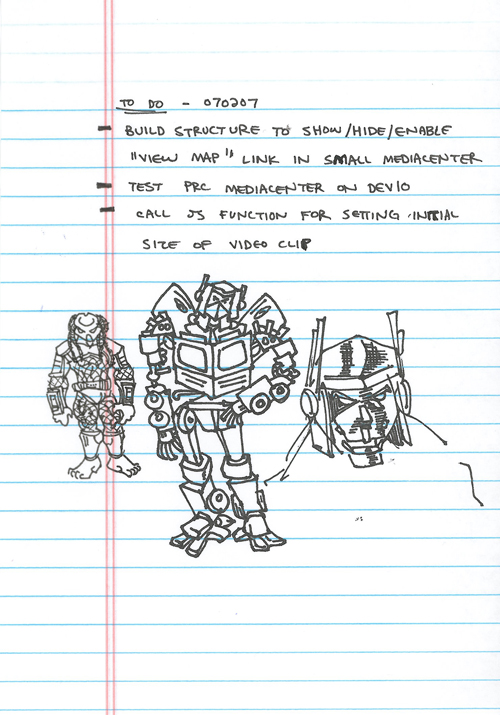 TO DO - 070207
- BUILD STRUCTURE TO SHOW/HIDE/ENABLE
"VIEW MAP" LINK IN SMALL MEDIACENTER
- TEST PRC MEDIACENTER ON DEV10
- CALL JS FUNCTION FOR SETTING INITIAL
SIZE OF VIDEO CLIP